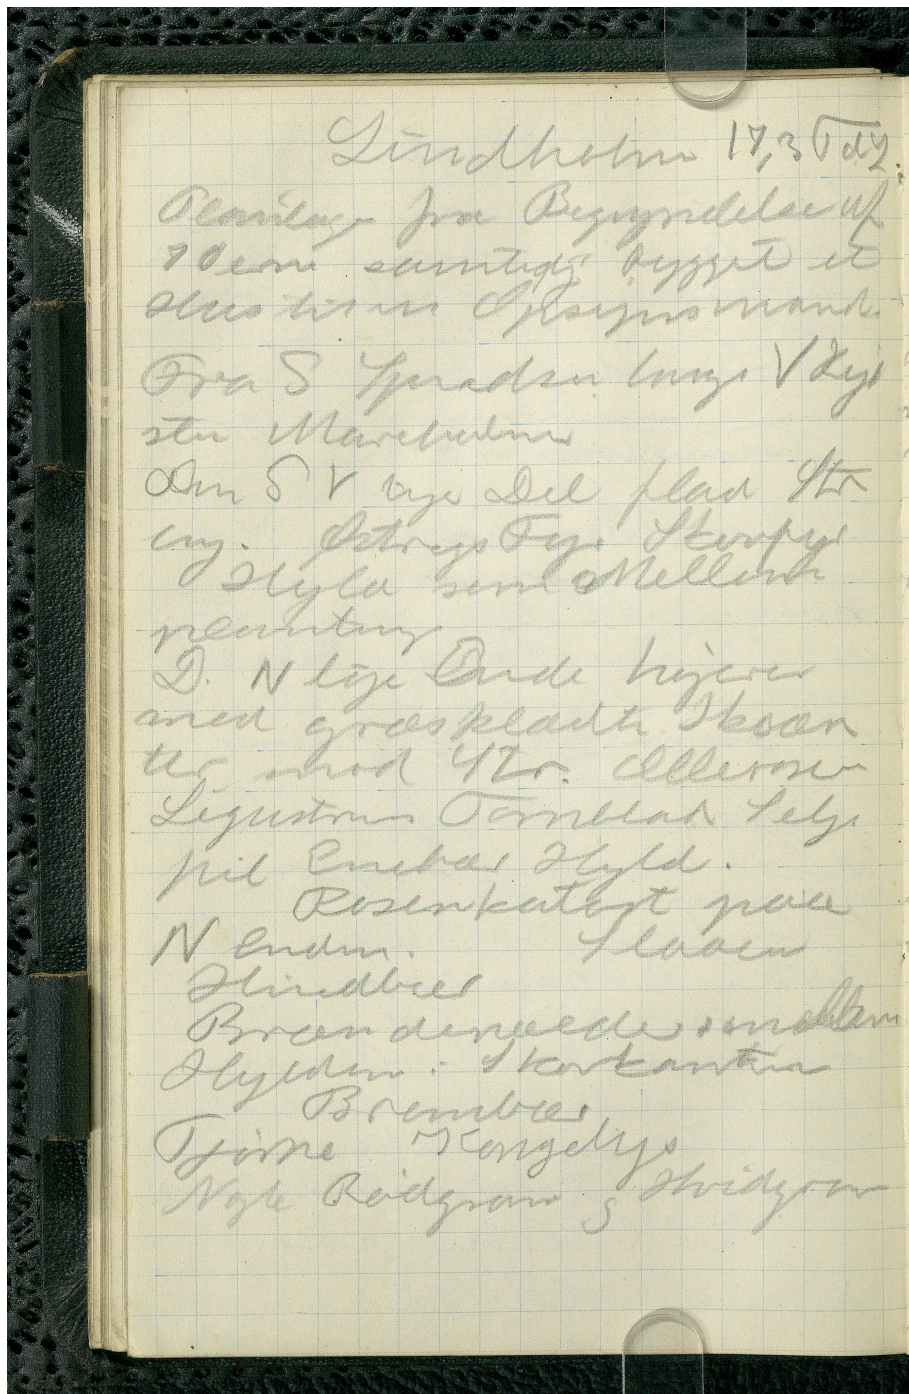 Lindholm 17,3 Td L.
Plantage fra Begyndelse af
70erne samtidig bygget et
Hus til en Opsynsmand.
Fra S Spredsn langs V Kyst
sten Marehalm
Den S V lige Del flad Str
eng. Østrigs Fyr Skovfyr
Hyld som Mellem
plantning
D. N lige Ende højere
med græsklædte Skræn
ter mod Str. Æblerosen
Ligustrum Tornblad Selje
pil Enebær Hyld.
Rosenkatost paa
N Enden. Slaaen
Hindbær
Brændenælder mellem
Hylden i Skovkanten
Brombær
Tjørne Kongelys
Nogle Rødgran og Hvidgran